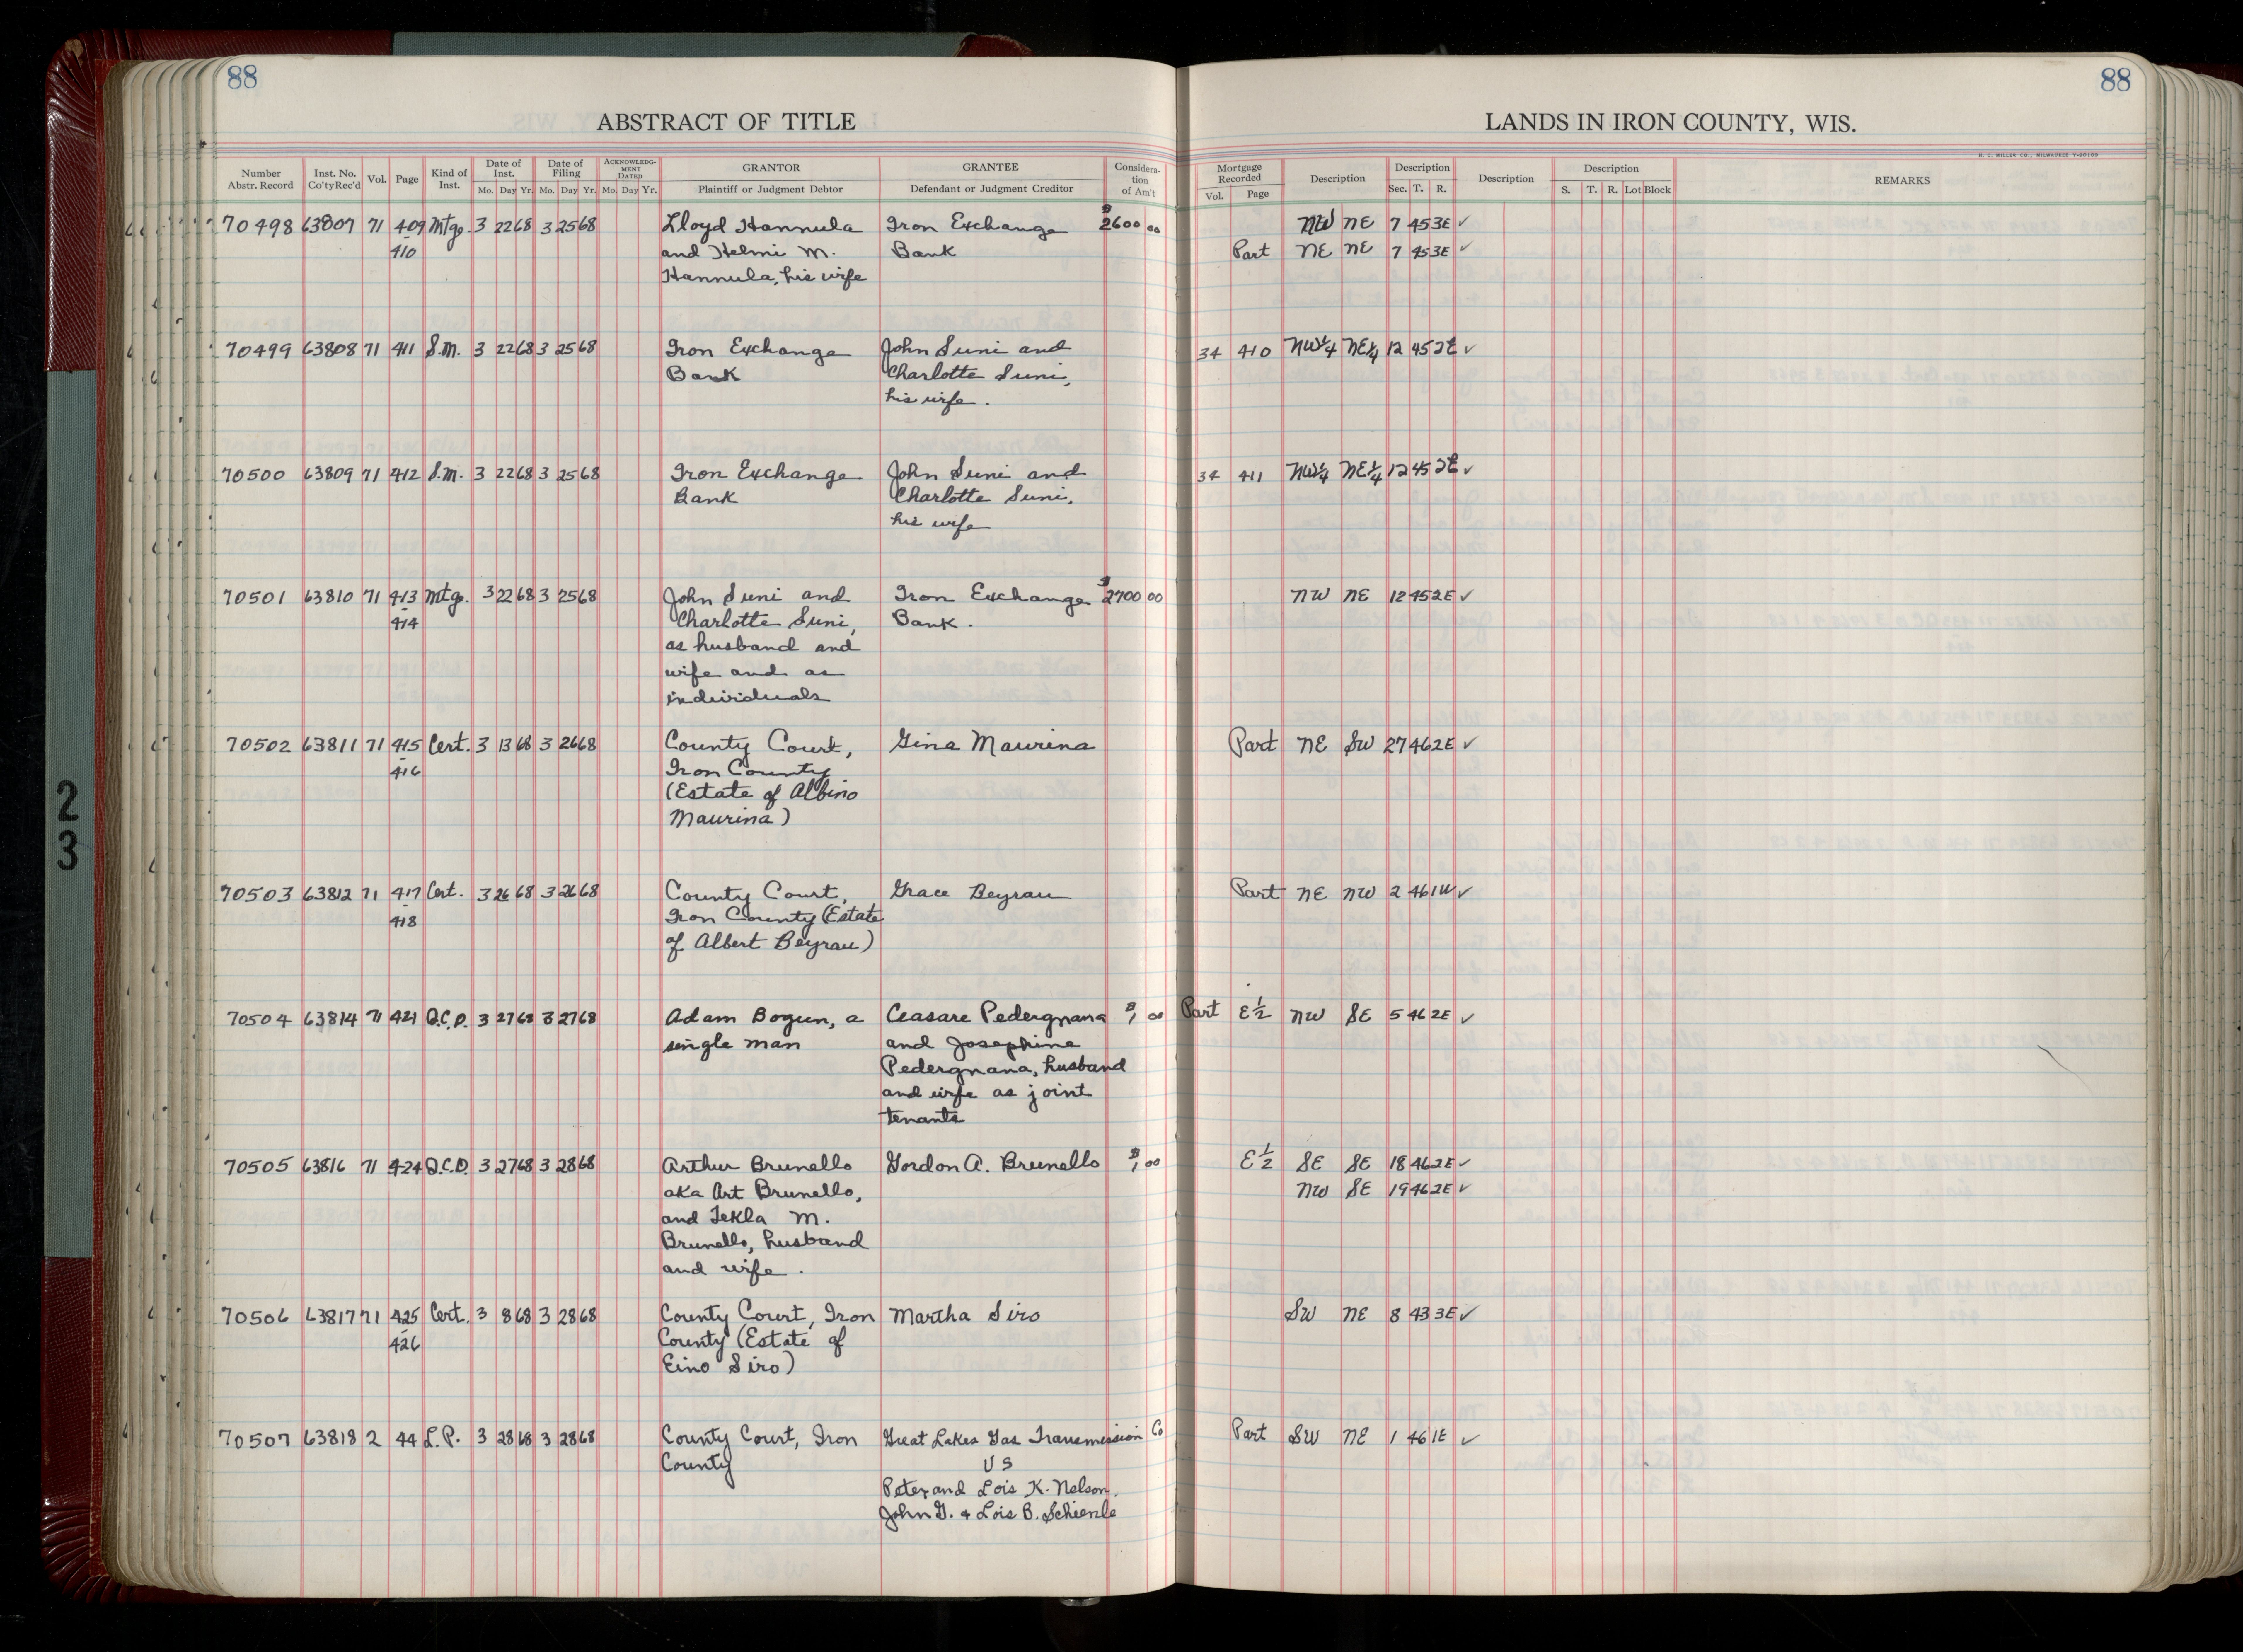 88
88
ABSTRACT OF TITLE
LANDS IN IRON COUNTY, WIS.
H. C. MILLER CO., MILWAUKEE
Number Abstr. Record | Inst. No. Co'ty Rec'd | Vol. | Page | Kind of Inst. | Date of Inst. Mo. Day Yr. | Date of Filing Mo. Day Yr. | ACKNOWLEDGMENT DATED Mo. Day Yr. | GRANTOR Plaintiff or Judgment Debtor | GRANTEE Defendant or Judgment Creditor | Consideration of Am't | Mortgage Recorded Vol. Page | Description | Description Sec. T. R. | Description | Description S. T. R. Lot Block | REMARKS
70498 63807 71 409 Mtge. 3 22 68 3 25 68 Lloyd Hannula Iron Exchange $2600 00 NW NE 7 45 3E ✓
410 and Helmi M. Bank Part NE NE 7 45 3E ✓
Hannula, his wife
70499 63808 71 411 S.M. 3 22 68 3 25 68 Iron Exchange John Suni and 34 410 NW¼ NE¼ 12 45 2E ✓
Bank Charlotte Suni,
his wife.
70500 63809 71 412 S.M. 3 22 68 3 25 68 Iron Exchange John Suni and 34 411 NW¼ NE¼ 12 45 2E ✓
Bank Charlotte Suni,
his wife
70501 63810 71 413 Mtge. 3 22 68 3 25 68 John Suni and Iron Exchange $2700 00 NW NE 12 45 2E ✓
-
414 Charlotte Suni, Bank.
as husband and
wife and as
individuals
70502 63811 71 415 Cert. 3 13 68 3 26 68 County Court, Gina Maurina Part NE SW 27 46 2E ✓
-
416 Iron County
(Estate of Albino
Maurina)
70503 63812 71 417 Cert. 3 26 68 3 26 68 County Court, Grace Beyrau Part NE NW 2 46 1W ✓
-
418 Iron County (Estate
of Albert Beyrau)
70504 63814 71 421 Q.C.D. 3 27 68 3 27 68 Adam Bogun, a Ceasare Pedergnana $1 00 Part E½ NW SE 5 46 2E ✓
single man and Josephine
Pedergnana, husband
and wife as joint
tenants
70505 63816 71 424 Q.C.D. 3 27 68 3 28 68 Arthur Brunello Gordon A. Brunello $1 00 E½ SE SE 18 46 2E ✓
aka Art Brunello, NW SE 19 46 2E ✓
and Tekla M.
Brunello, husband
and wife.
70506 63817 71 425 Cert. 3 8 68 3 28 68 County Court, Iron Martha Siro SW NE 8 43 3E ✓
-
426 County (Estate of
Eino Siro)
70507 63818 2 44 L.P. 3 28 68 3 28 68 County Court, Iron Great Lakes Gas Transmission Co Part SW NE 1 46 1E ✓
County VS
Peter and Lois K. Nelson.
John G. + Lois B. Schienle
2
3